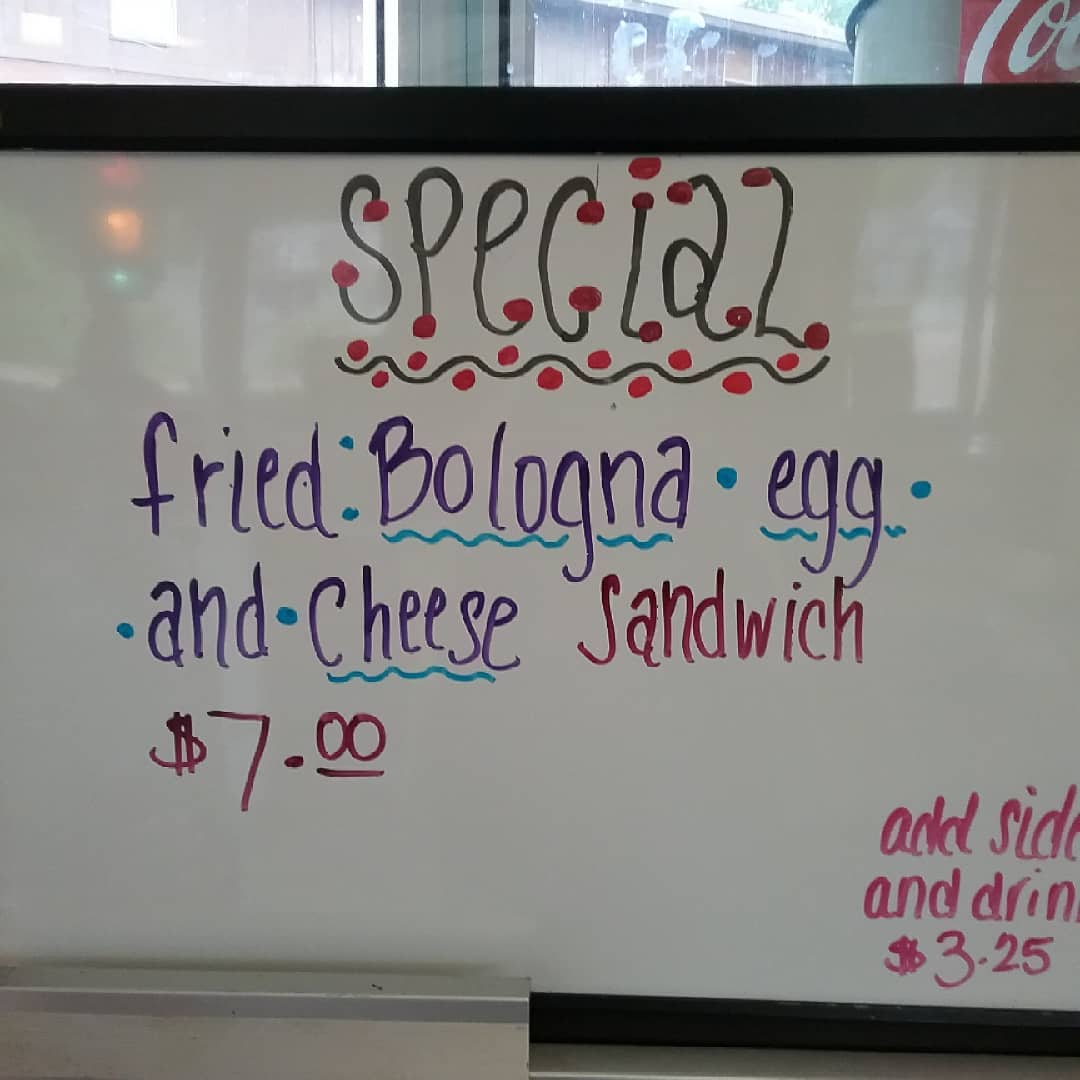 Special
fried: Bologna • egg •
• and • Cheese Sandwich
$7.00
add side
and drin
$3.25